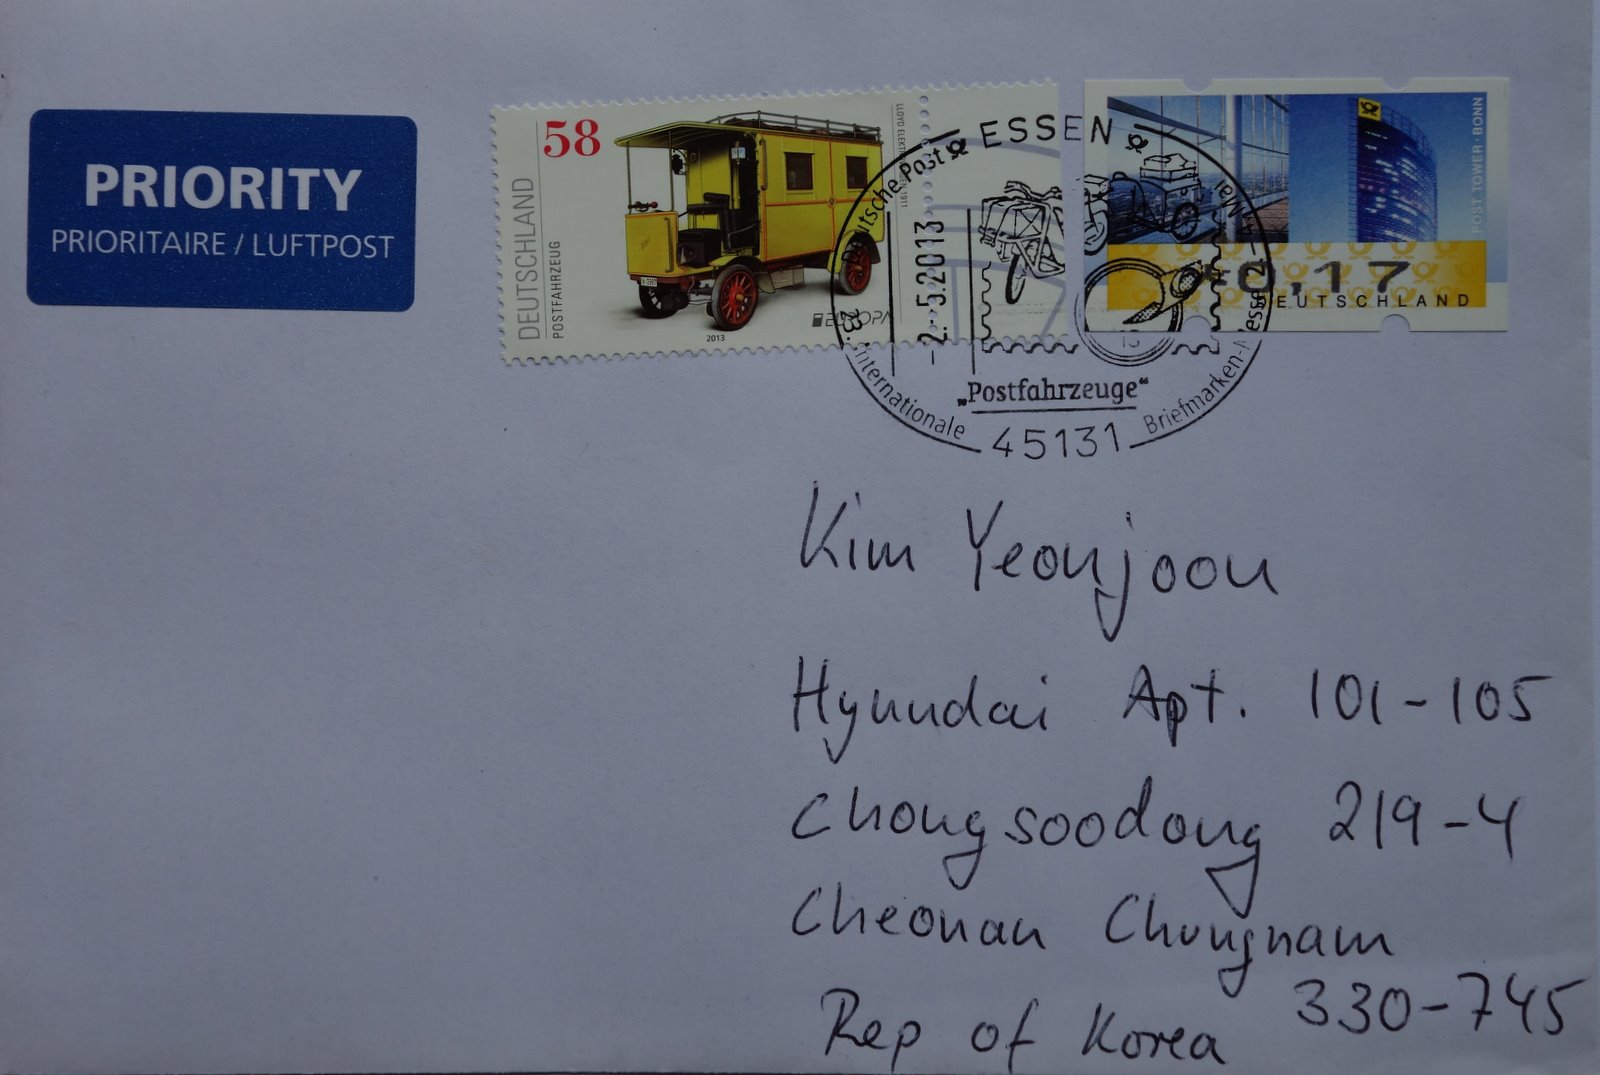 PRIORITY
PRIORITAIRE / LUFTPOST
58
DEUTSCHLAND
POSTFAHRZEUG
2013
EUROPA
POST TOWER BONN
0,17
DEUTSCHLAND
Deutsche Post
ESSEN
-2.-5.2013
23. Internationale
Briefmarken-Messe
„Postfahrzeuge“
45131
Kim Yeonjoon
Hyundai Apt. 101-105
Chongsoodong 219-4
Cheonan Chungnam
Rep of Korea 330-745